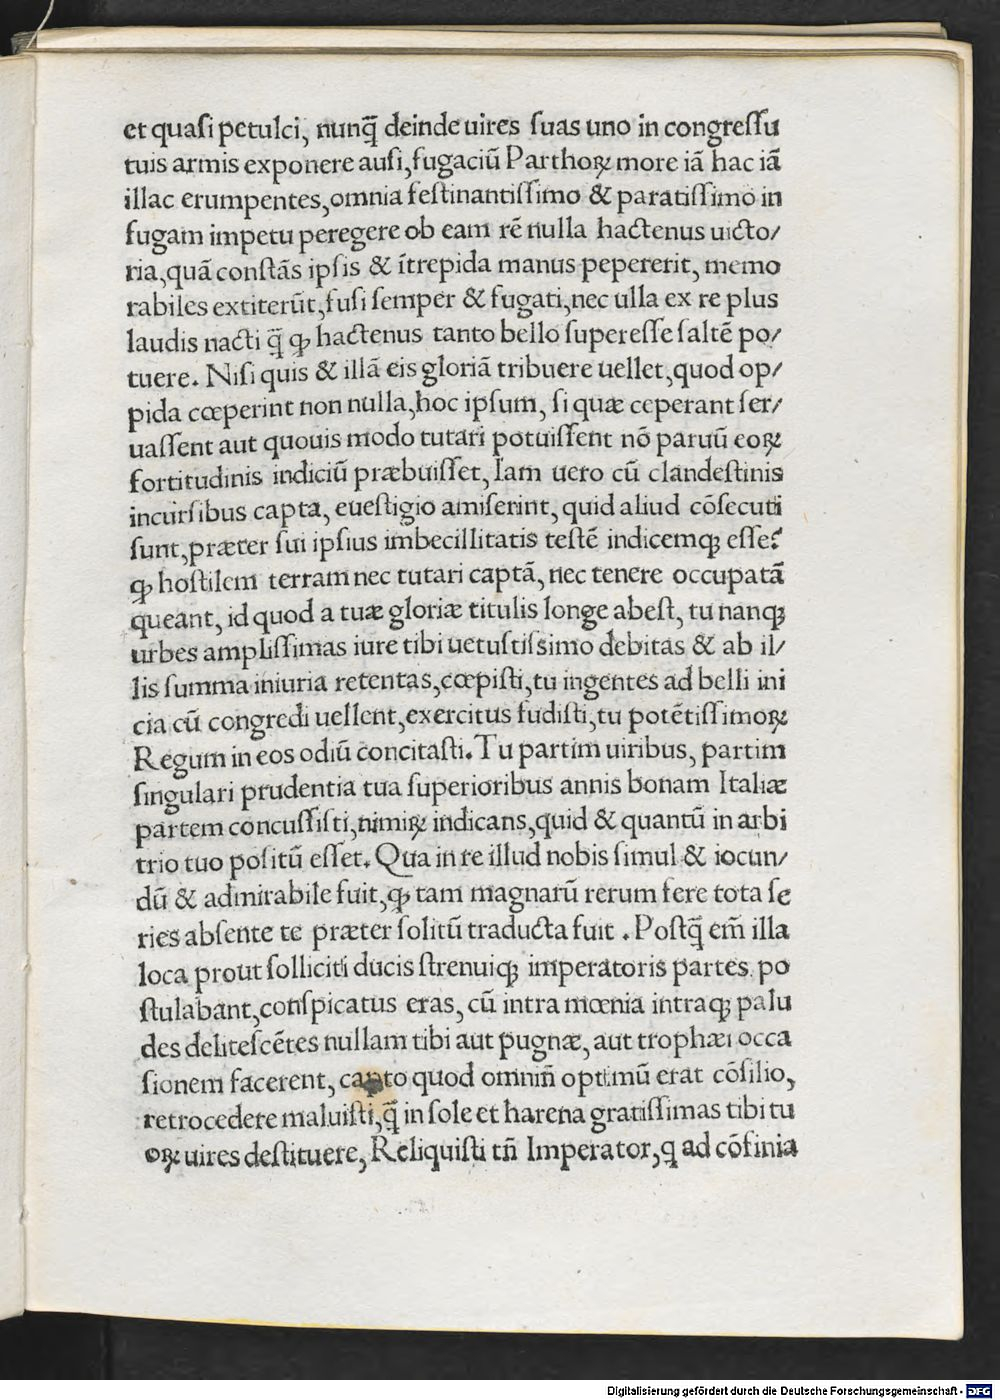 et quaſi petulci, nunq̃ deinde uires ſuas uno in congreſſu
tuis armis exponere auſi, fugaciũ Parthoꝝ more iã hac iã
illac erumpentes, omnia feſtinantiſſimo & paratiſſimo in
fugam impetu peregere ob eam rẽ nulla hactenus uicto/
ria, quã conſtãs ipſis & ĩtrepida manus pepererit, memo
rabiles extiterũt, fuſi ſemper & fugati, nec ulla ex re plus
laudis nacti q̃ ꝙ hactenus tanto bello ſupereſſe ſaltẽ po/
tuere. Niſi quis & illã eis gloriã tribuere uellet, quod op/
pida cœperint non nulla, hoc ipſum, ſi quæ ceperant ſer/
uaſſent aut quouis modo tutari potuiſſent nõ paruũ eoꝝ
fortitudinis indiciũ præbuiſſet, Iam uero cũ clandeſtinis
incurſibus capta, eueſtigio amiſerint, quid aliud cõſecuti
ſunt, præter ſui ipſius imbecillitatis teſtẽ indicemqꝫ eſſe?
ꝙ hoſtilem terram nec tutari captã, nec tenere occupatã
queant, id quod a tuæ gloriæ titulis longe abeſt, tu nanqꝫ
urbes ampliſſimas iure tibi uetuſtiſsimo debitas & ab il/
lis ſumma iniuria retentas, cœpiſti, tu ingentes ad belli ini
cia cũ congredi uellent, exercitus fudiſti, tu potẽtiſſimoꝝ
Regum in eos odiũ concitaſti. Tu partim uiribus, partim
ſingulari prudentia tua ſuperioribus annis bonam Italiæ
partem concuſſiſti, nimiꝝ indicans, quid & quantũ in arbi
trio tuo poſitũ eſſet. Qua in re illud nobis ſimul & iocun/
dũ & admirabile fuit, ꝙ tam magnarũ rerum fere tota ſe
ries abſente te præter ſolitũ traducta fuit. Poſtq̃ em̃ illa
loca prout ſolliciti ducis ſtrenuiqꝫ imperatoris partes po
ſtulabant, conſpicatus eras, cũ intra mœnia intraqꝫ palu
des deliteſcẽtes nullam tibi aut pugnæ, aut trophæi occa
ſionem facerent, capto quod omniñ optimũ erat cõſilio,
retrocedere maluiſti, q̃ in ſole et harena gratiſſimas tibi tu
oꝝ uires deſtituere, Reliquiſti tñ Imperator, q ad cõfinia
Digitalisierung gefördert durch die Deutsche Forschungsgemeinschaft - DFG